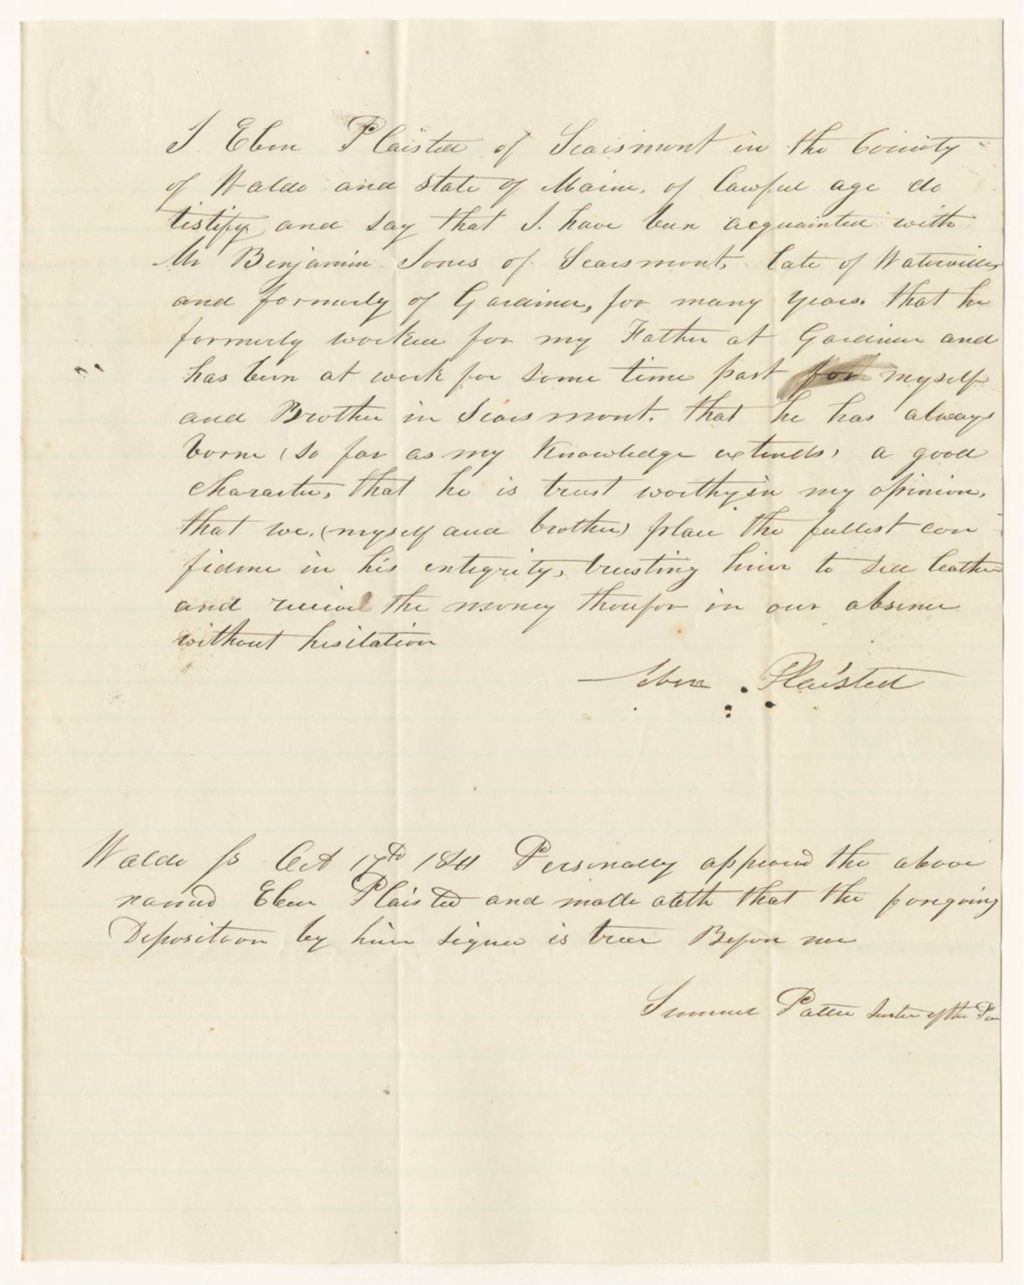 I Eben Plaisted of Searsmont in the County
of Waldo and state of Maine, of lawful age do
testify and say that I have been acquainted with
Mr Benjamin Jones of Searsmont, late of Waterville
and formerly of Gardiner, for many years. that he
formerly worked for my Father at Gardiner and
has been at work for some time past for myself
and Brother in Searsmont. that he has always
borne (so far as my Knowledge extends) a good
character, that he is trust worthy in my opinion,
that we, (myself and brother) place the fullest con
fidence in his integrity, trusting him to sell leather
and receive the money therefor in our absence
without hesitation
Eben Plaisted
Waldo ss Oct 17th 1841 Personally appeared the above
named Eben Plaisted and made oath that the foregoing
Deposition by him signed is true Before me
Samuel Justice of the